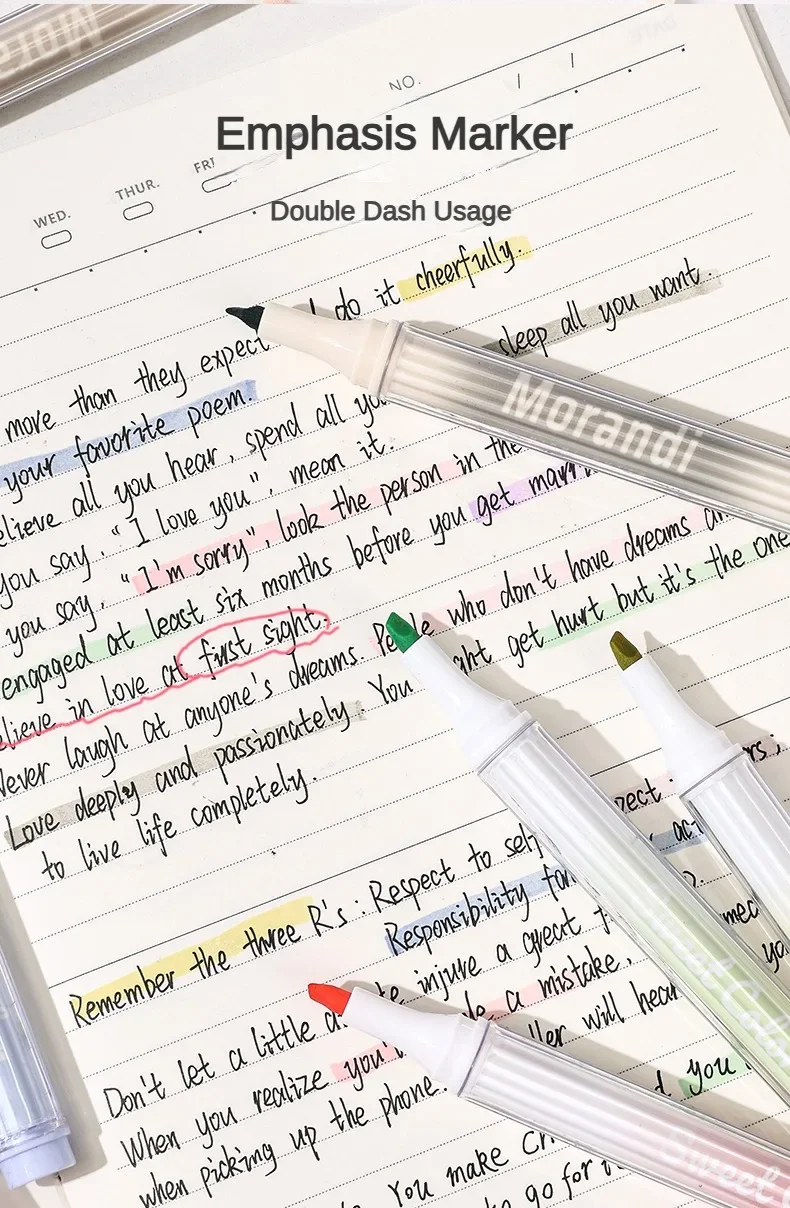 Morandi
NO. / /
DATE
Emphasis Marker
WED. THUR. FRI
Double Dash Usage
do it cheerfully.
sleep all you want.
more than they expect
your favorite poem.
believe all you hear, spend all you
you say. "I love you", mean it.
you say. "I'm sorry", look the person in the
engaged at least six months before you get marri
elieve in love at first sight.
Never laugh at anyone's dreams. People who don't have dreams
Love deeply and passionately. You ght get hurt but it's the one
to live life completely.
Morandi
Remember the three R's : Respect to self
Responsibility for
Don't let a little injure a great
When you realize you' a mistake,
when picking up the phone. ller will hear
you
You make
to go for it
Sweet Color
Sweet